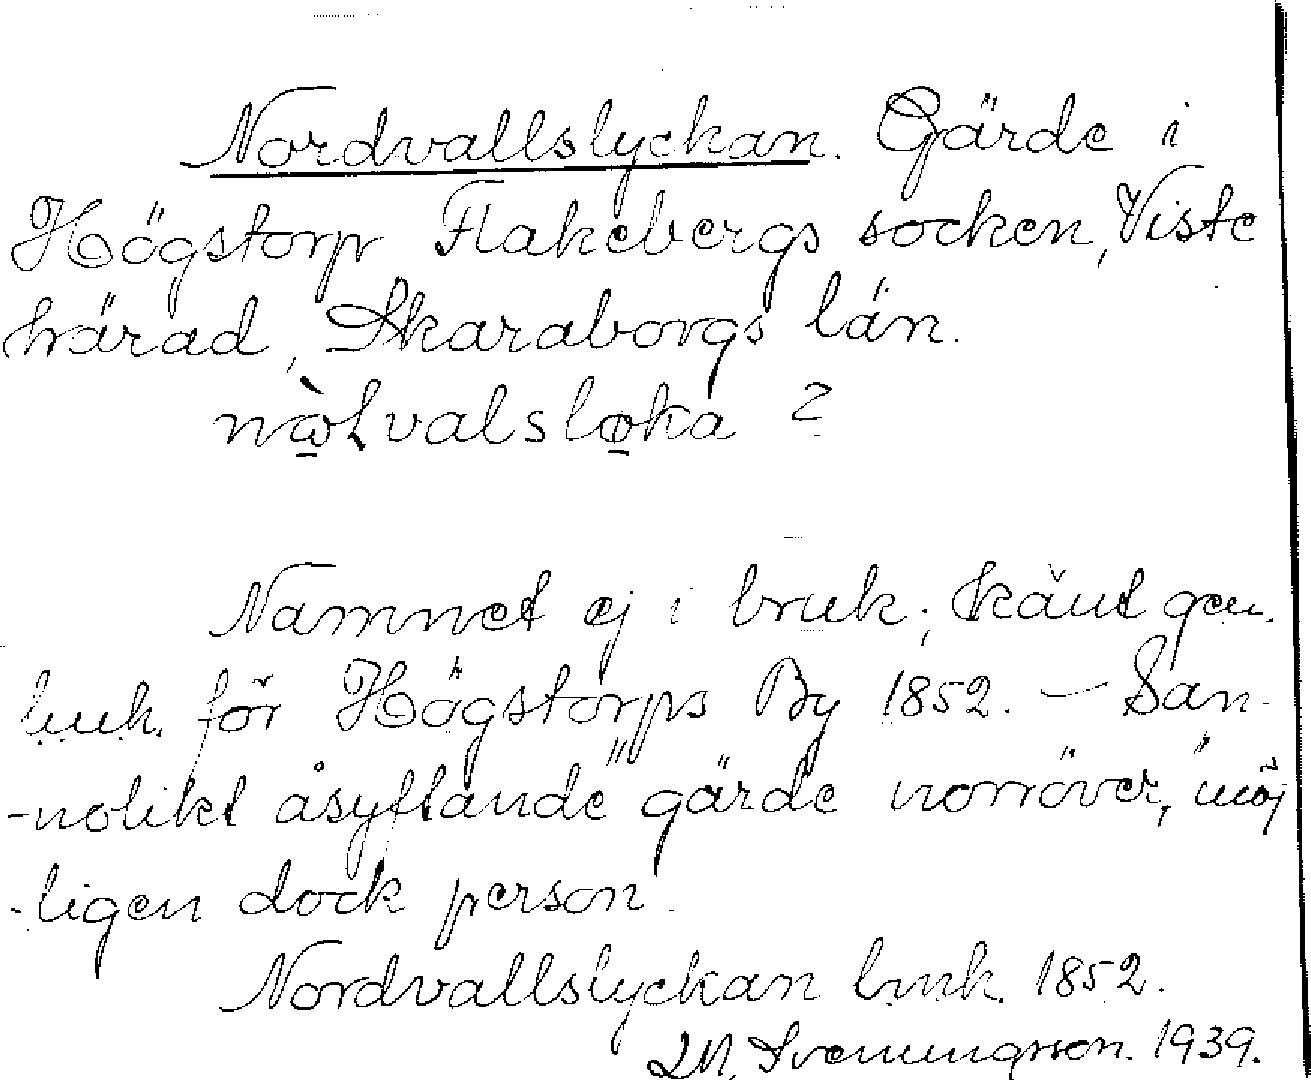 Nordvallslyckan. Gärde i
Högstorp Flakebergs socken, Viste
härad, Skaraborgs län.
nὼ̲lvalslφ̲ka ?
Namnet ej i bruk; känt gen.
luuk. för Högstorps By 1852. — San-
-nolikt åsyftande gärde norröver, möj
-ligen dock person.
Nordvallslyckan luuk. 1852.
Svenungsson. 1939.